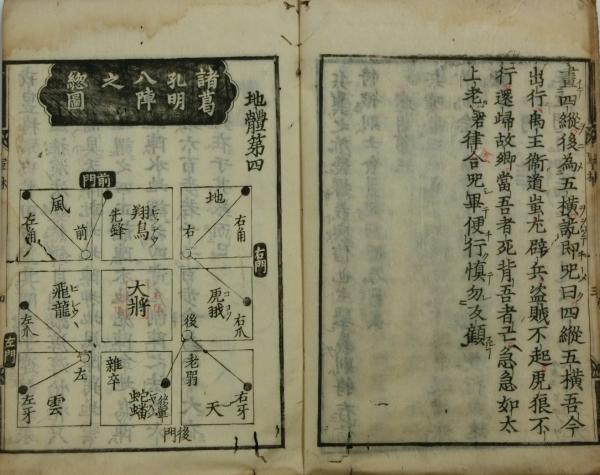 畫四縱後為五橫訖即咒曰四縱五橫吾今
出行禹王衞道蚩尤辟兵盜賊不起虎狼不
行還歸故鄉當吾者死背吾者亡急急如太
上老君律令咒畢便行慎勿反顧
地體第四
諸葛
孔明
八陣
之
總圖
前門
地
右角
右
翔鳥
先鋒
風
前
左角
右門
虎翼
右爪
大將
飛龍
左爪
左門
後
老弱
天
右牙
雜卒
蛇蟠
後門
左
雲
左牙